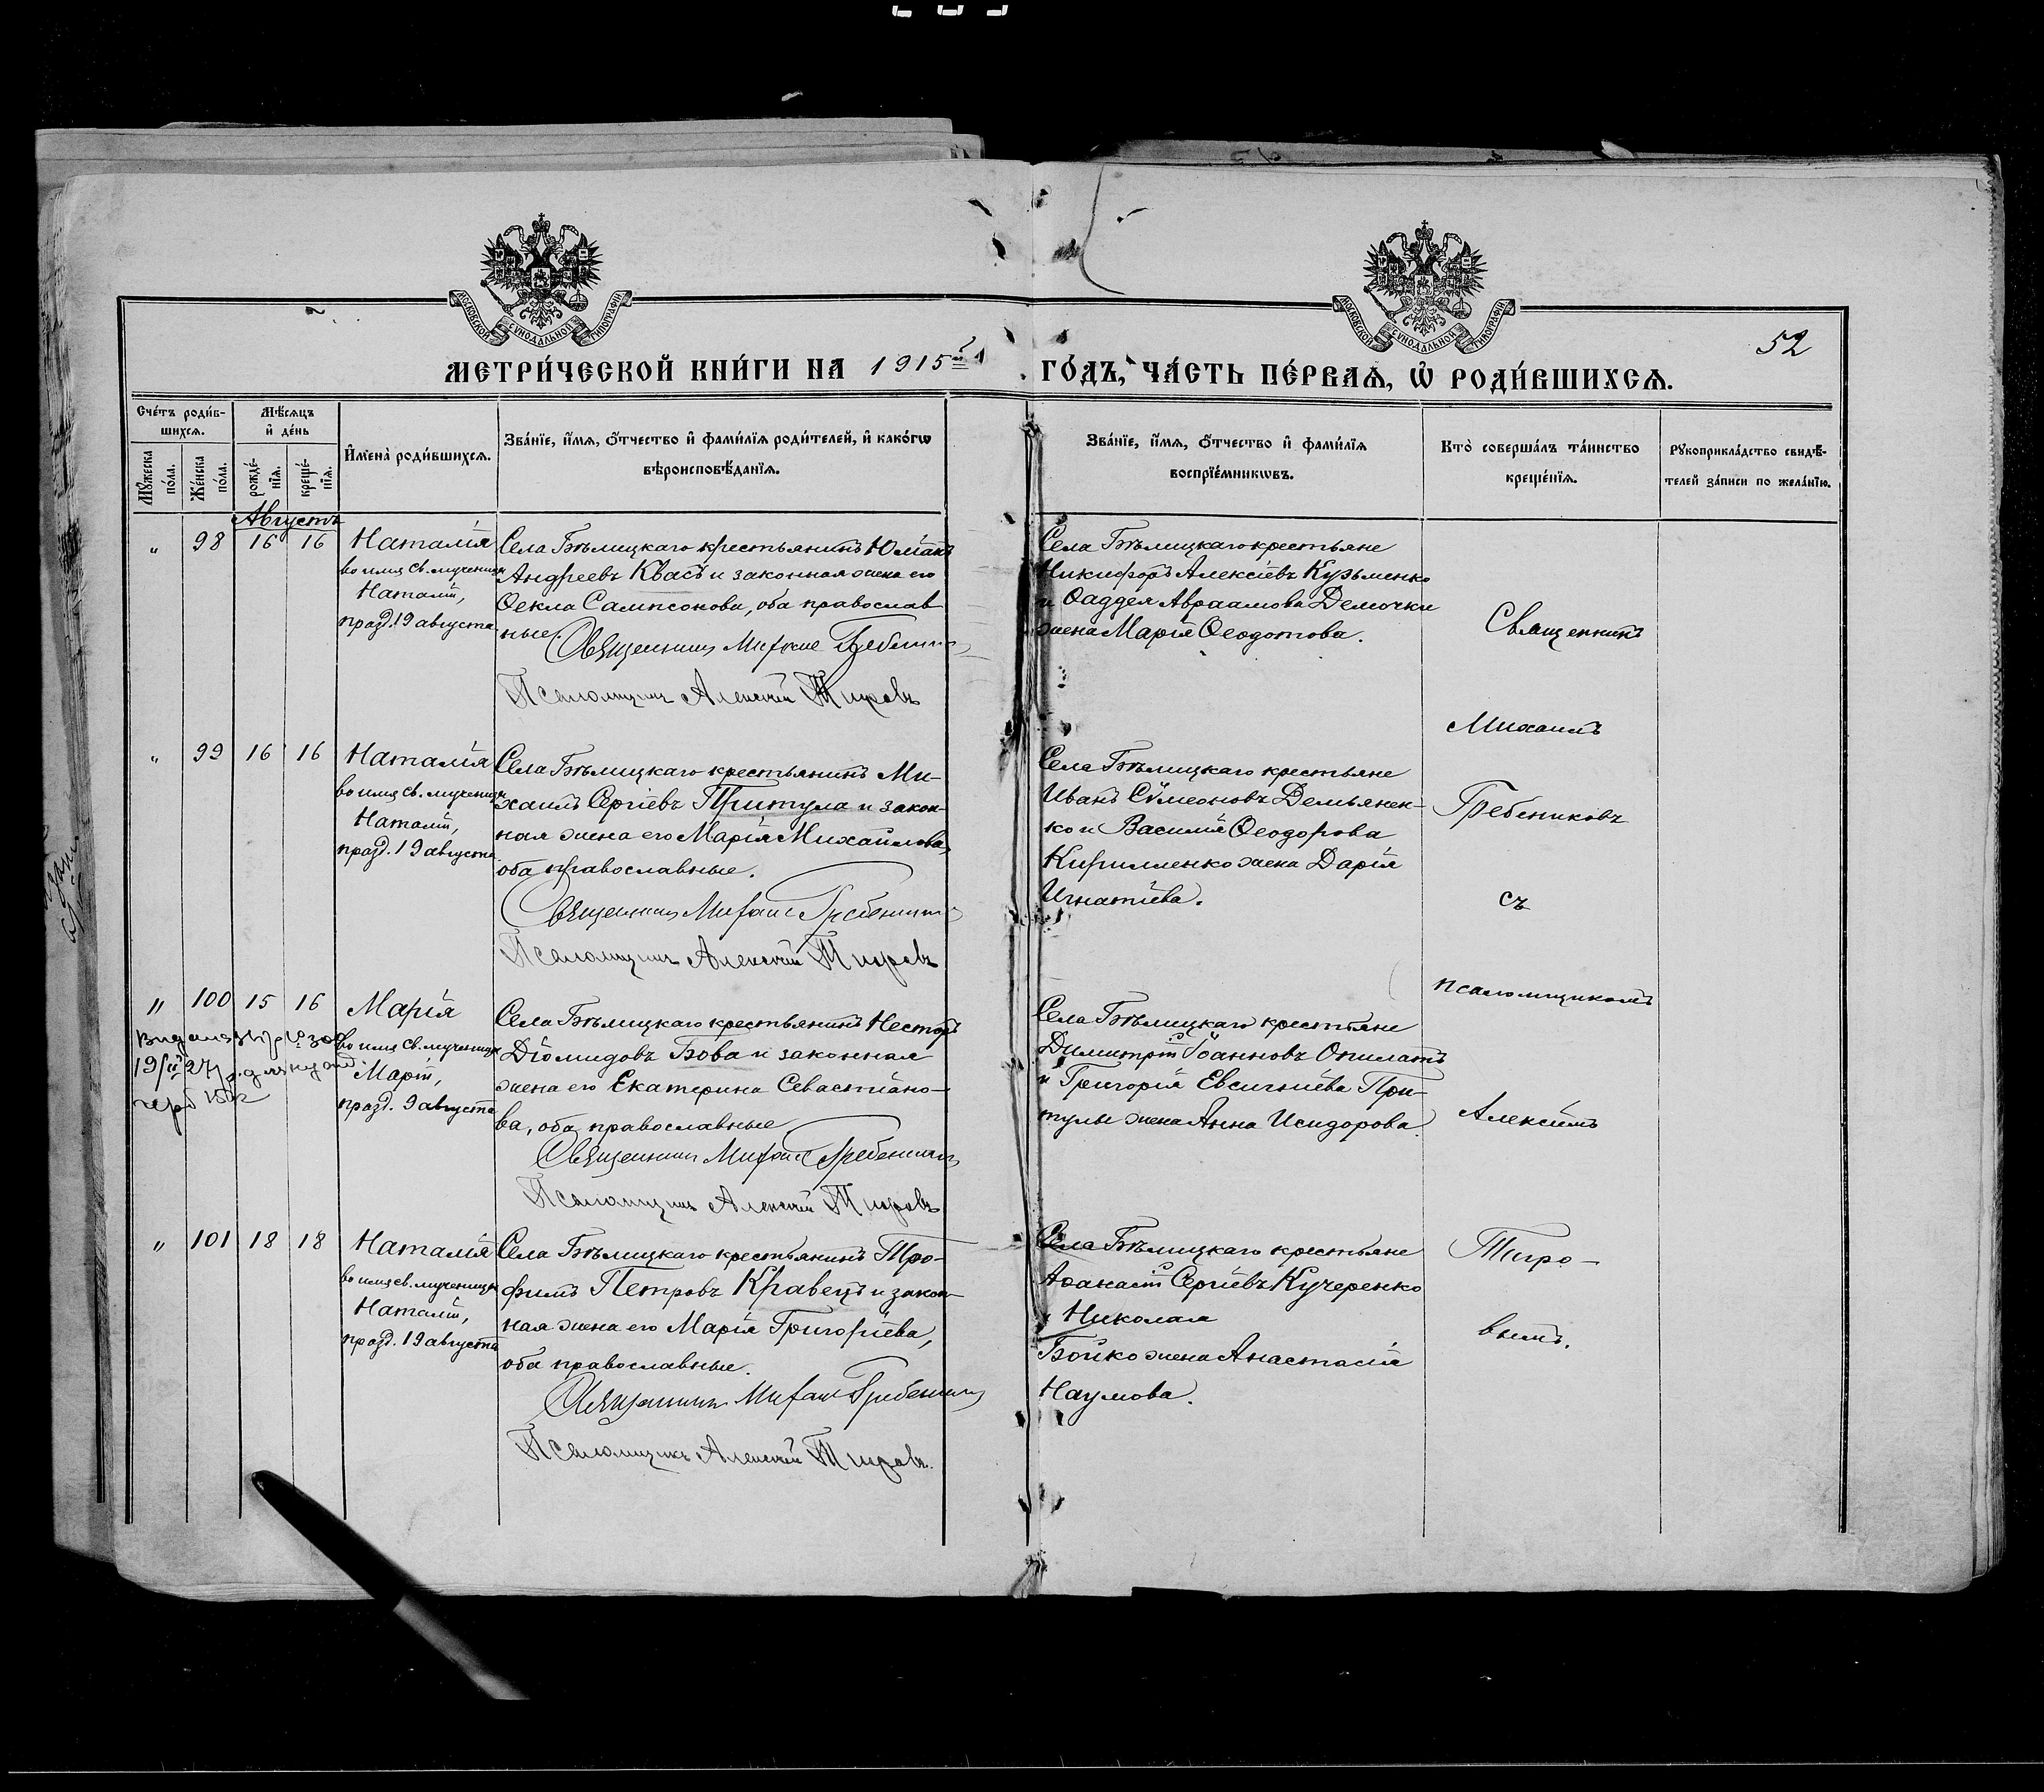 МОСКОВСКОЙ СУНОДАЛЬНОЙ ТИПОГРАФІИ
МОСКОВСКОЙ СУНОДАЛЬНОЙ ТИПОГРАФІИ
52
МЕТРИ́ЧЕСКОЙ КНИ́ГИ НА 1915й
ГО́ДЪ, ЧА́СТЬ ПЕ́РВАѦ, Ѡ҆ РОДИ́ВШИХСѦ.
Сче́тъ роди́в-
шихсѧ.
Мѣ́сѧцъ
и҆ де́нь
Мꙋ́жеска
по́ла.
Же́нска
по́ла.
рожде́-
нїѧ.
креще́-
нїѧ.
И҆мена̀ роди́вшихсѧ.
Зва́нїе, и҆́мѧ, о҆́тчество и҆ фами́лїѧ роди́телей, и҆ како́гѡ
вѣроисповѣ́данїѧ.
Зва́нїе, и҆́мѧ, о҆́тчество и҆ фами́лїѧ
воспрїе́мникѡвъ.
Кто̀ соверша́лъ та́инство
креще́нїѧ.
Рꙋкоприкла́дство свидѣ́-
телей за́писи по жела́нїю.
Августъ
" 98 16 16 Наталія
во имя св. мученицы
Наталіи,
празд. 19 августа
Села Бѣлицкаго крестьянинъ
Андреевъ Квасъ и законная жена его
Ѳекла Сампсонова, оба православ
ные.
Священникъ Михаилъ Гребениковъ
Псаломщикъ Алексій Тигровъ
Села Бѣлицкаго крестьяне
Никифоръ Алексіевъ Кузьменко
и Ѳаддея Авраамова Демочки
жена Марія Ѳеодотова.
Священникъ
Михаилъ
" 99 16 16 Наталія
во имя св. мученицы
Наталіи,
празд. 19 августа
Села Бѣлицкаго крестьянинъ Ми-
хаилъ Сергіевъ Притула и закон-
ная жена его Марія Михайлова,
оба православные.
Священникъ Михаилъ Гребениковъ
Псаломщикъ Алексій Тигровъ
Села Бѣлицкаго крестьяне
Иванъ Сѵмеоновъ Демьянен-
ко и Василія Ѳеодорова
Кирилленко жена Дарія
Игнатіева.
Гребениковъ
съ
псаломщикомъ
" 100 15 16 Марія
во имя св. мученицы
Маріи,
празд. 9 августа
Села Бѣлицкаго крестьянинъ Несторъ
Діомидовъ Бова и законная
жена его Екатерина Севастіано-
ва, оба православные
Священникъ Михаилъ Гребениковъ
Псаломщикъ Алексій Тигровъ
Села Бѣлицкаго крестьяне
Димитрій Іоанновъ Опилатъ
и Григорія Евсигніева При-
тулы жена Анна Исидорова.
Алексіемъ
" 101 18 18 Наталія
во имя св. мученицы
Наталіи,
празд. 19 августа
Села Бѣлицкаго крестьянинъ Тро-
фимъ Петровъ Кравецъ и закон-
ная жена его Марія Григоріева,
оба православные.
Священникъ Михаилъ Гребениковъ
Псаломщикъ Алексій Тигровъ.
Села Бѣлицкаго крестьяне
Аѳанасій Сергіевъ Кучеренко
и Николая
Бойко жена Анастасія
Наумова.
Тигро-
вымъ.